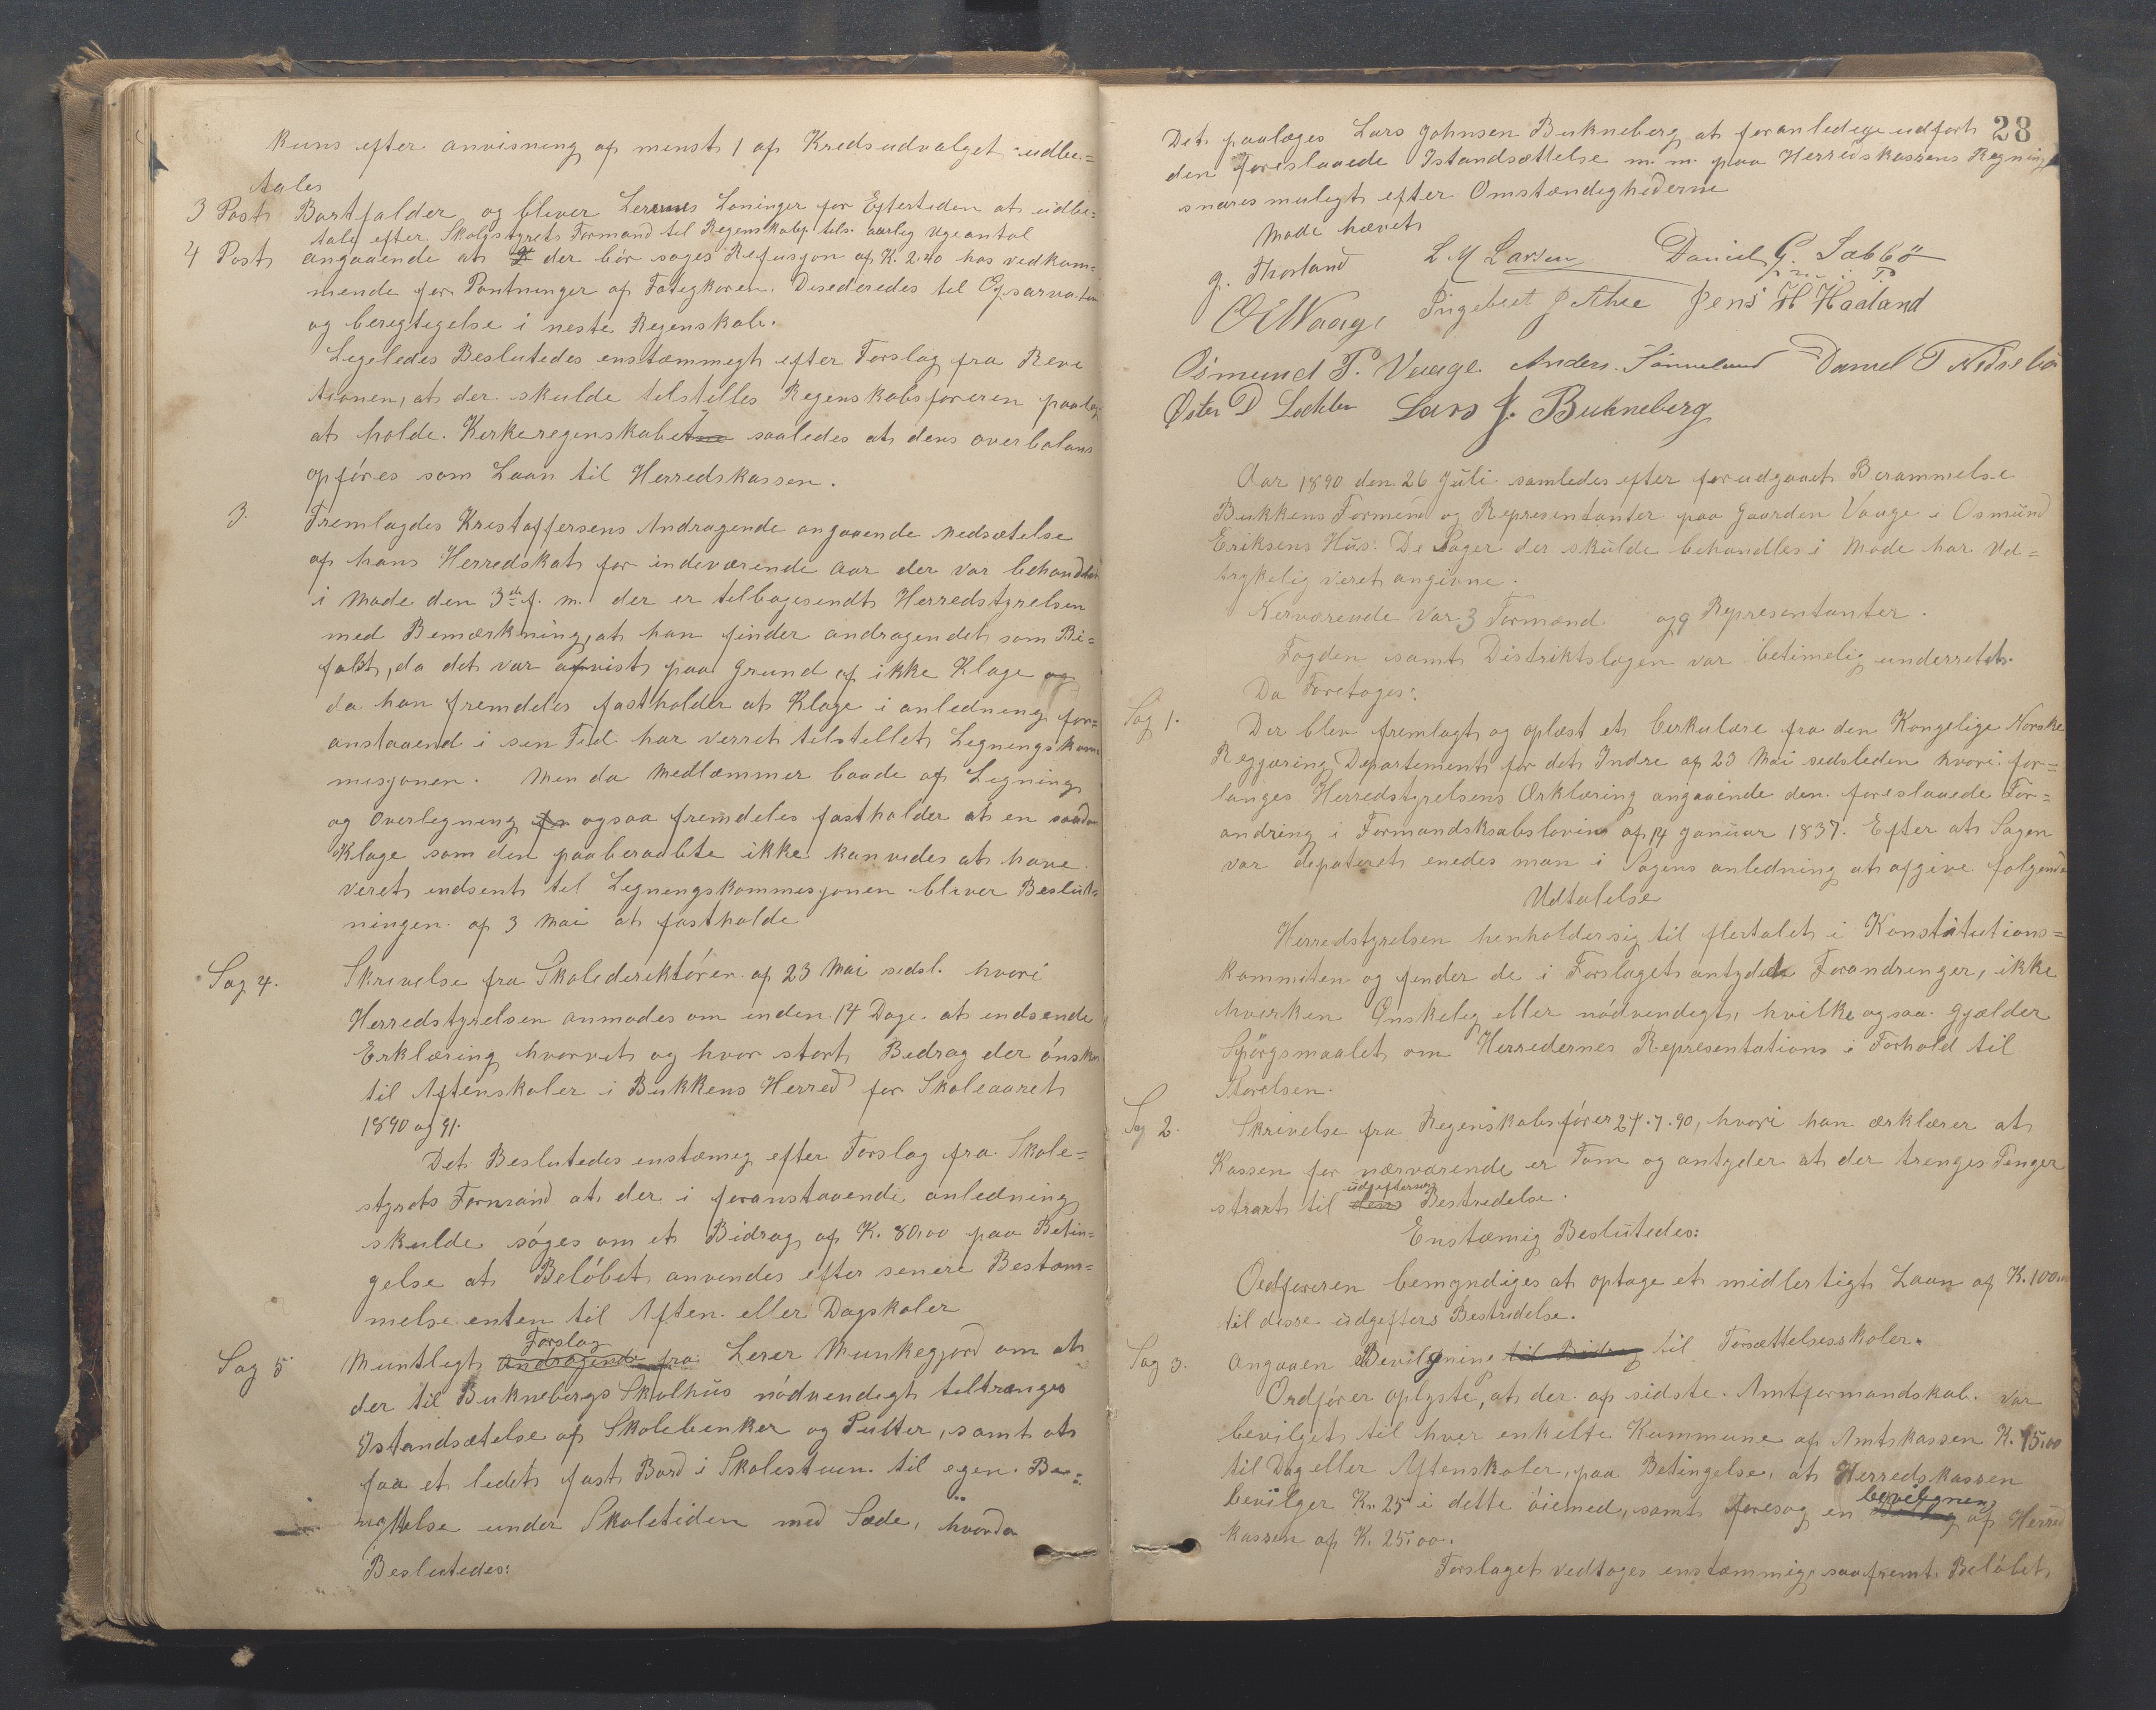 kuns efter anvisning af menst 1 af Kredsudvalget udbe=
tales
3 Post Bortfalder og bliver Lerernes Löninger for Eftertiden at udbe=
tale efter Skolestyrets Formand til Regenskabsf. tels. aarleg Ugeantal
4 Post angaaende at der bör söges Refusjon af K. 2.40 hos vedkom=
mende for Pantninger af Fategkoren. Desederedes til Opsarvation
og beregtegelse i neste Regenskab.
Legeledes Beslutedes enstæmmegt efter Forslag fra Reve
tionen, at der skulde telstelles Regenskabsföreren paalæg
at holde Kerkeregenskabet saaledes at dens overbalans
opföres som Laan til Herredskassen.
3. Fremlagdes Kristoffersens Andragende angaaende nedsætelse
af hans Herredskat for indeværende aar der var behandlet
i Möde den 3de f. m. der er telbagesendt Herredstyrelsen
med Bemærkning, at han finder andragendet som Bi=
faldt, da det var afvist paa Grund af ikke Klage og
da han fremdeles fastholder at Klage i anledneng for=
anstaaend i sen Tid har verret telstellet Legningskom
mesjonen. Men da Medlæmmer baade af Legning
og Overlegning ogsaa fremdeles fastholder at en saadan
Klage som den paaberaabte ikke kan vides at have
veret indsent tel Legnengskommesjonen bliver Beslut=
ningen af 3 Mai at fastholde
Sag 4. Skrevelse fra Skoledirektören af 23 Mai sidsl. hvori
Herredstyrelsen anmodes om inden 14 Dage at indsende
Erklæring hvorvet og hvor stort Bedrag der önskes
til Aftenskoler i Bukkens Herred for Skoleaaret
1890 og 91.
Det Beslutedes enstæmig efter Forslag fra Skole=
styrets Formand at der i foranstaaende anledning
skulde söges om et Bidrag af K. 80.00 paa Betin=
gelse at Belöbet anvendes efter senere Bestæm=
melse enten til Aften eller Dagskoler
Sag 5 Muntlegt andragende fra Forslag Lerer Munkegjord om at
der til Buknebergs Skolhus nödvendegt teltrænges
Istandsætelse af Skolebenker og Pulter, samt at
faa et ledet fast Bord i Skolestuen til egen Be=
nyttelse under Skoletiden med Sæde, hvorda
Beslutedes:
28
Det paalæges Lars Johnsen Bukneberg at foranledege udfört
den Foreslaaede Istandsættelse m. m. paa Herredskassens Regning
snares mulegt efter Omstændighederne
Möde hævet
G. Thorland L M Larsen Daniel G. Sabbö
O E Waage Ingebret J Jens H Haaland
Osmund P. Vaage. Anders Sönneland Daniel T
D Lars J. Bukneberg
Aar 1890 den 26 Juli samledes efter forudgaaet Berammelse
Bukkens Formend og Representanter paa Gaarden Vaage i Osmund
Eriksens Hus. De Sager der skulde behandles i Möde har Ud=
trykelig veret angivne.
Nerværende var 3 Formænd og 9 Representanter.
Fogden samt Distriktslægen var betimelig underrettet.
Da Foretoges:
Sag 1. Der blev fremlagt og oplæst et Cerkulære fra den Kongelige Norske
Regjæring Departement for det Indre af 23 Mai sidsleden hvori for=
langes Herredstyrelsens Ærklæring angaaende den foreslaaede For=
andring i Formandskabsloven af 14 Januar 1837. Efter at Sagen
var depateret enedes man i Sagens anledning at afgive fölgende
Udtalelse
Herredstyrelsen henholder sig til flertalet i Konstitutions=
kommiten og finder de i Forslaget antydede Forandringer, ikke
hverken Önskelig eller nödvendigt, hvilke ogsaa gjælder
Spörgsmaalet om Herredernes Representations i Forhold til
Störelsen.
Sag 2. Skrivelse fra Regenskabsförer 24.7.90, hvori han ærklærer at
Kassen for nærværende er Tom og antyder at der trenges Penger
strart til dens udgifternes Bestredelse.
Enstæmig Beslutedes:
Ordföreren bemyndiges at optage et midlertigt Laan af K. 100.00
til disse udgifters Bestridelse.
Sag 3. Angaaen Bevilgning til Bidrag til Forsættelsesskoler.
Ordförer oplyste, at der af sidste Amtformandskab var
bevilget til hver enkelte Kummune af Amtskassen K. 75.00
til Dag eller Aftenskoler, paa Betingelse, at Herredskassen
bevilger K. 25 i dette öiemed, samt foresog en bevilgnen af Herred
kassen af K. 25.00.
Forslaget vedtoges enstæmmig, saafremt Belöbet